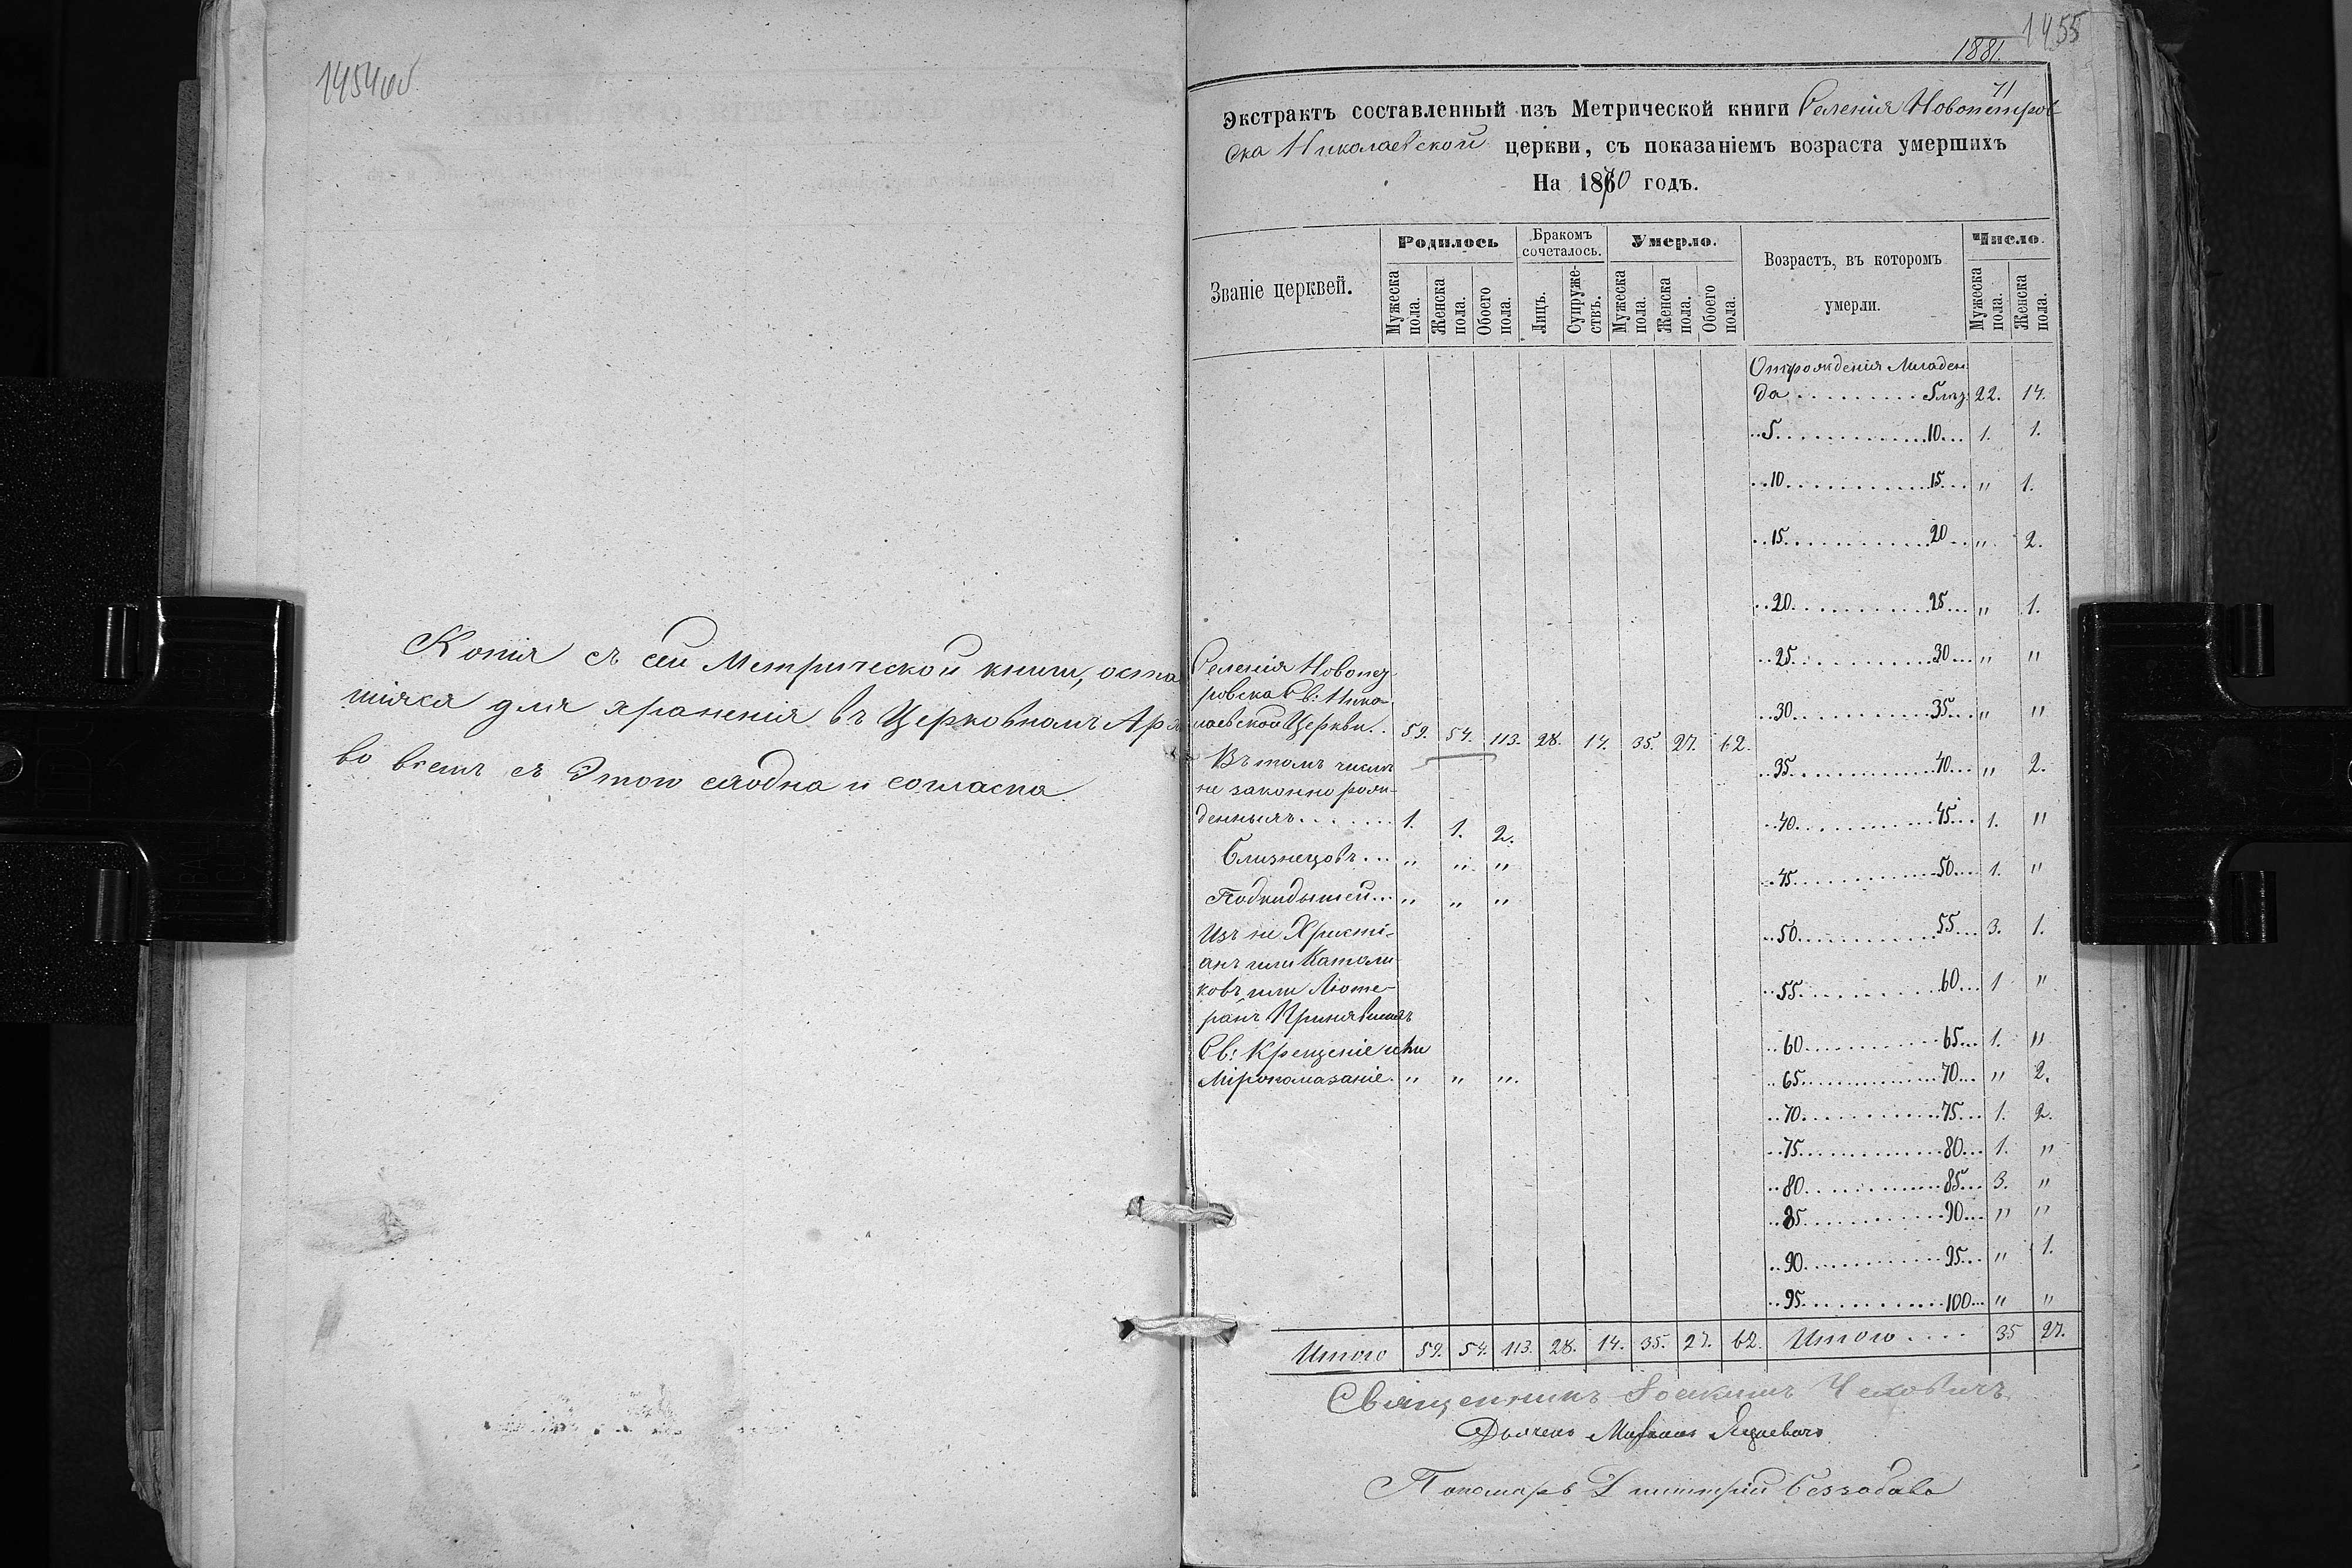 1454об
Копія съ сей Метрической книги, оста
шіяся для храненія въ Церковномъ Арх
во всемъ съ Этою сходна и согласна.
1455
1881.
71
Экстрактъ составленный изъ Метрической книги Селенія Новопетров-
ска Николаевской церкви, съ показаніемъ возраста умершихъ
На 1870 годъ.
Званіе церквей.
Родилось
Бракомъ сочеталось.
Умерло.
Возрастъ, въ которомъ умерли.
Число.
Мужеска пола.
Женска пола.
Обоего пола.
Лицъ.
Супружествъ.
Мужеска пола.
Женска пола.
Обоего пола.
Мужеска пола.
Женска пола.
Отъ рожденія Младен.
до . . . . . . . . . 5 22. 14.
..5. . . . . . . . . .10... 1. 1.
..10. . . . . . . . . .15... " 1.
..15. . . . . . . . . .20... " 2.
..20. . . . . . . . . .25... " 1.
..25. . . . . . . . . .30... " "
..30. . . . . . . . . .35... " "
..35. . . . . . . . . .40... " 2.
..40. . . . . . . . . .45... 1. "
..45. . . . . . . . . .50... 1. "
..50. . . . . . . . . .55... 3. 1.
..55. . . . . . . . . .60... 1 "
..60. . . . . . . . . .65... 1. "
..65. . . . . . . . . .70... " 2.
..70. . . . . . . . . .75... 1. 2.
..75. . . . . . . . . .80... 1. "
..80. . . . . . . . . .85... 3. "
..85. . . . . . . . . .90... " "
..90. . . . . . . . . .95... " 1.
..95. . . . . . . . . .100... " "
Селенія Новопет
ровска Св: Нико-
лаевской Церкви. . 59. 54. 113. 28. 14. 35. 27. 62.
Въ томъ числѣ
не законно рож-
денныхъ. . . . . . . 1. 1. 2.
Близнецовъ... " " "
Подкидышей... " " "
Изъ не Христі-
анъ или Католи
ковъ или Люте-
ранъ Принявшихъ
Св: Крещеніе или
Мѵропомазаніе. " " ".
Итого 59. 54. 113. 28. 14. 35. 27. 62. Итого . . . . 35 27.
Священникъ Іоакимъ Чеховичъ
Дьячекъ Михаилъ
Пономарь Димитрій